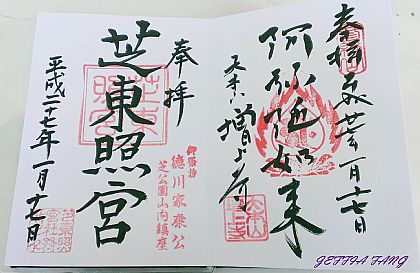 奉拝
平成廿七年一月十七日
阿弥陀如来
大本山増上寺
奉拝
芝東照宮
御祭神
徳川家康公
芝公園山内鎮座
平成二十七年一月十七日
芝東照宮
GEFIYA FANG